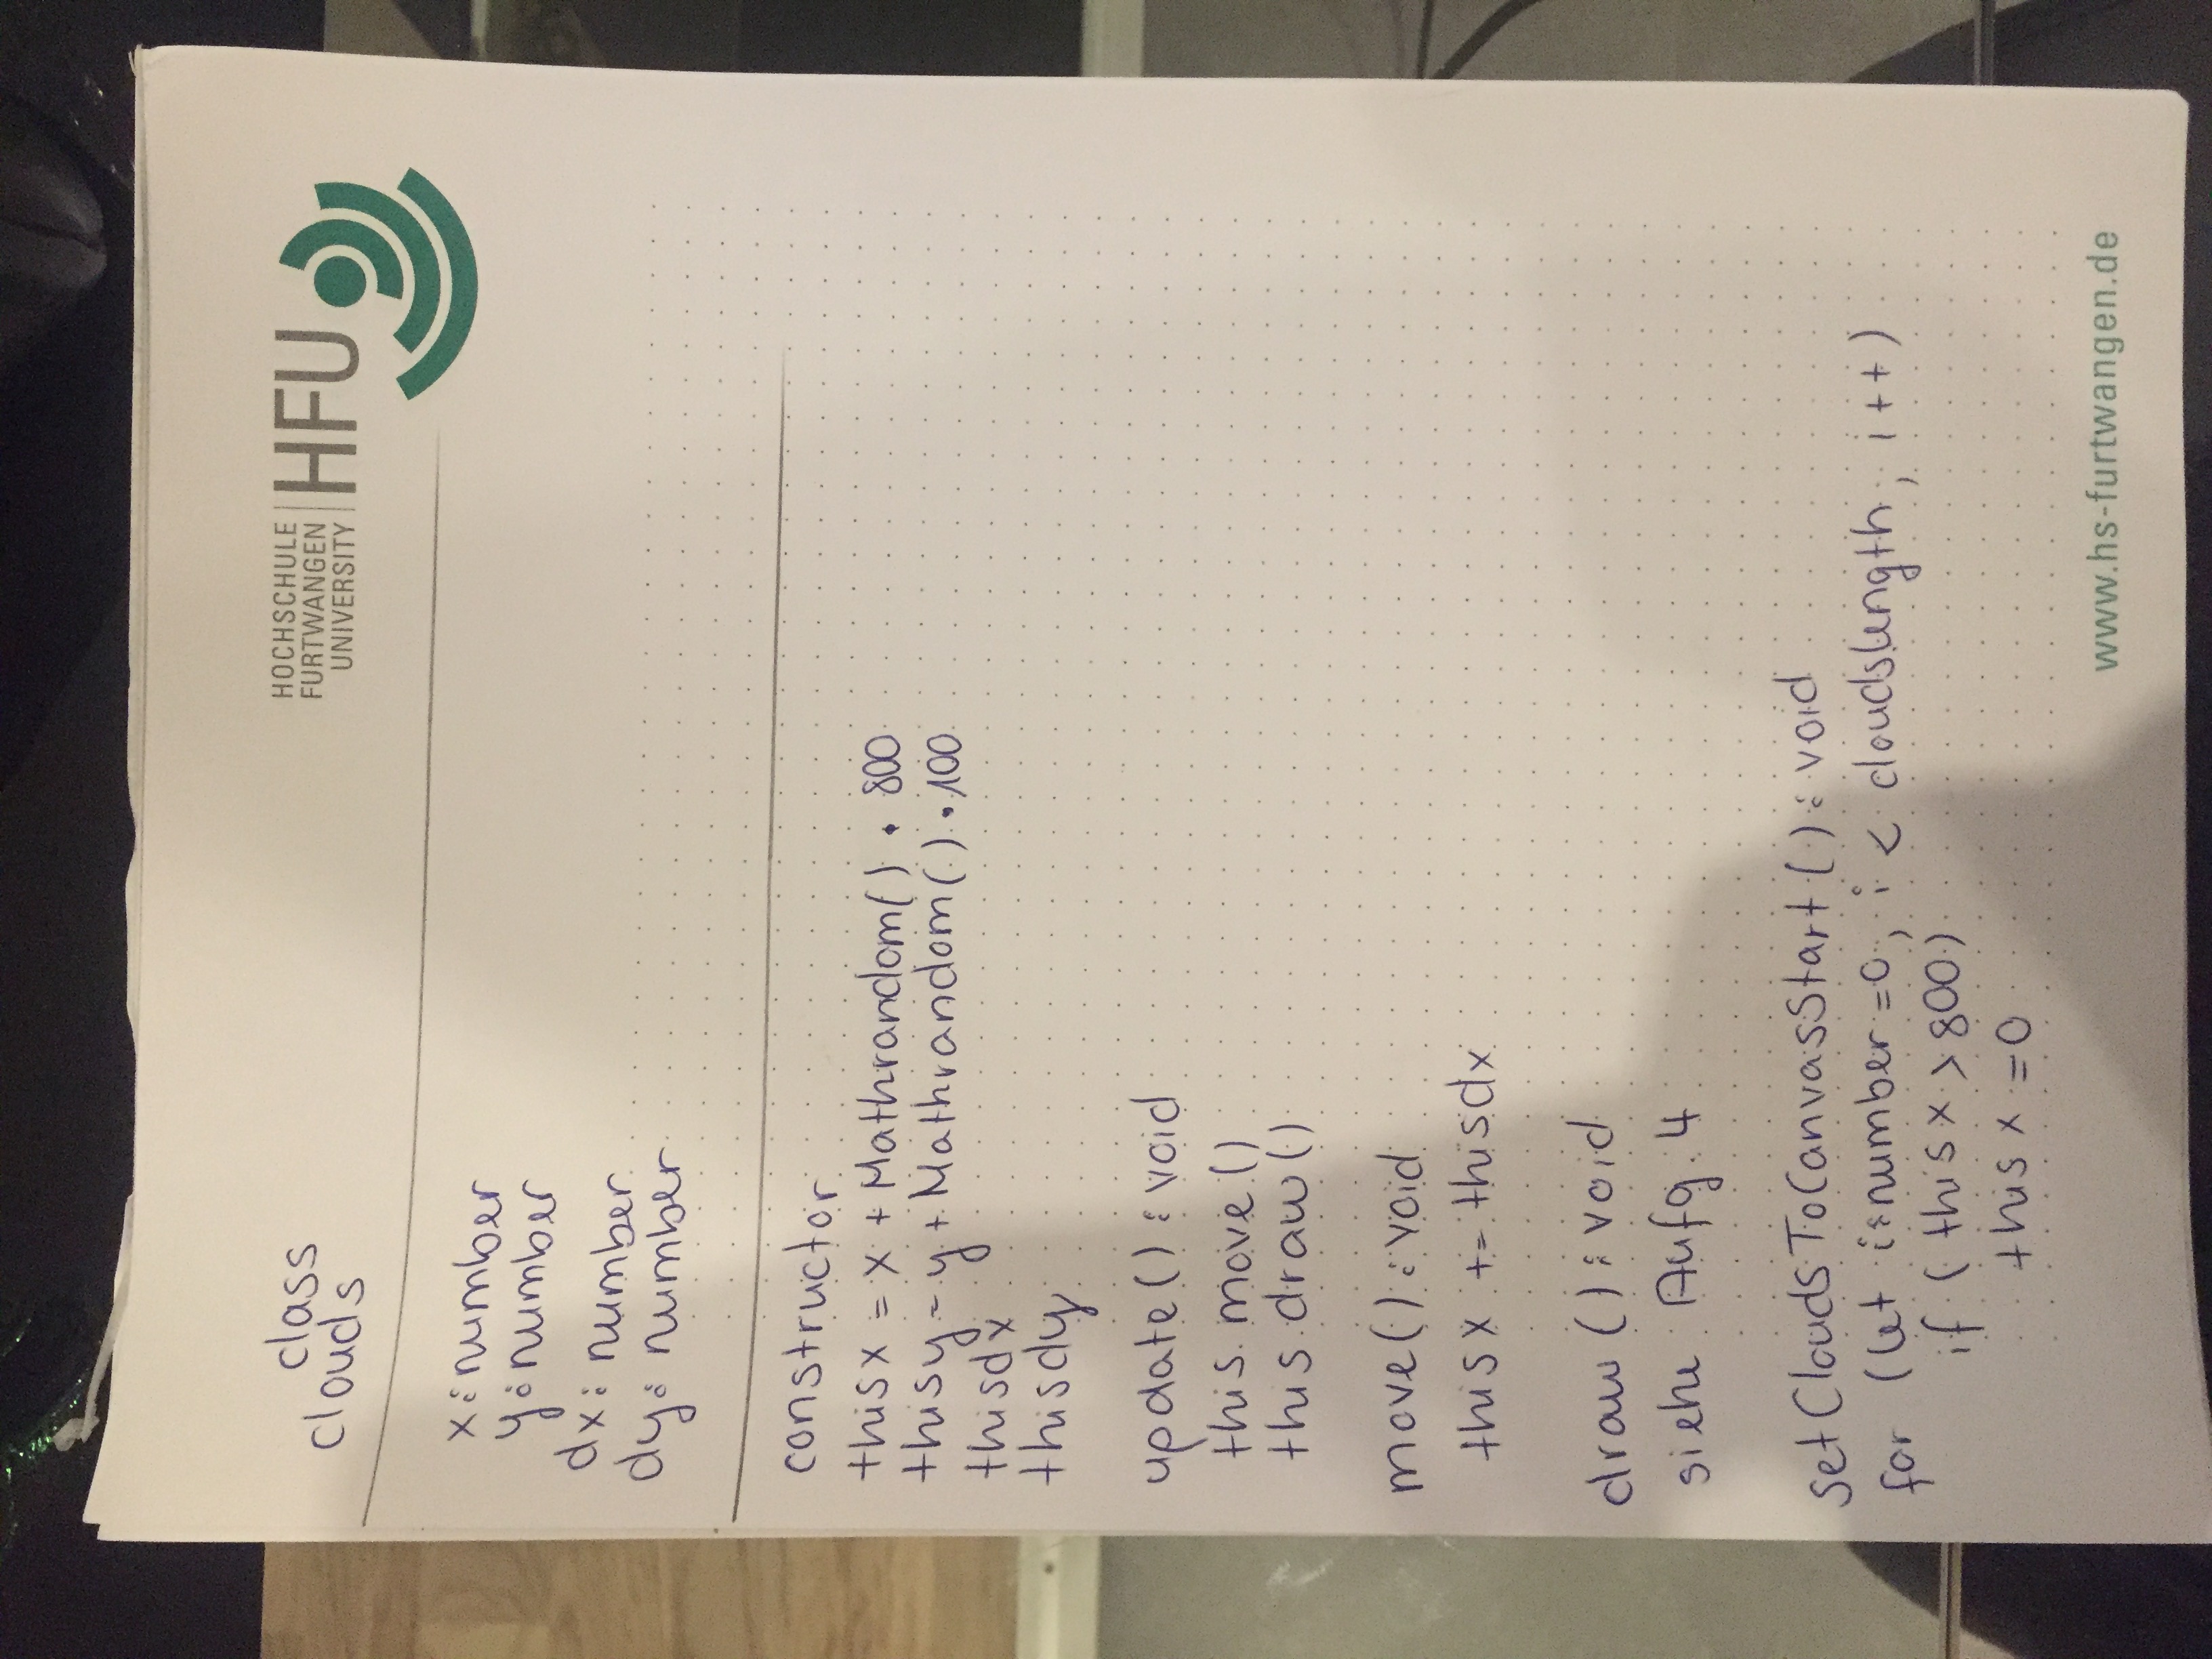 class
clouds
HOCHSCHULE
FURTWANGEN
UNIVERSITY
HFU
x: number
y: number
dx: number
dy: number
constructor
thisx = x + Mathrandom() • 800
thisy = y + Mathrandom() • 100
thisdx
thisdy
update() : void
this.move()
this.draw()
move() : void
thisx += thisdx
draw() : void
siehe Aufg. 4
setCloudsToCanvasStart() : void
for (let i:number = 0, i < cloudslength, i++)
if (thisx > 800)
thisx = 0
www.hs-furtwangen.de